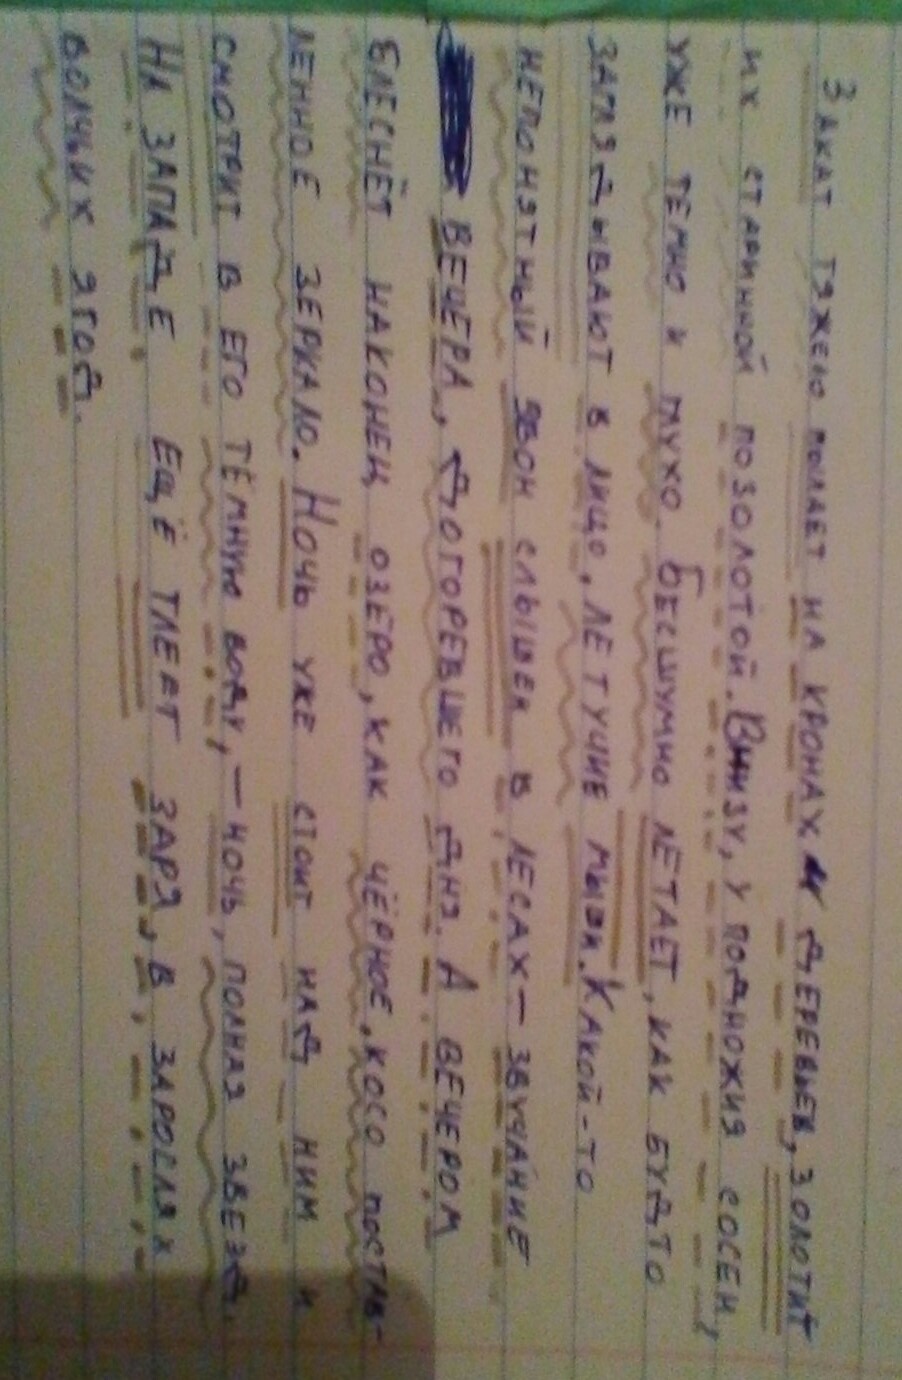 Закат тяжело пылает на кронах деревьев, золотит
их старинной позолотой. Внизу, у подножия сосен,
уже темно и глухо. Бесшумно летает, как будто
заглядывают в лицо, летучие мыши. Какой-то
непонятный звон слышен в лесах — звучание
вечера, догоревшего дня. А вечером
блеснёт наконец озеро, как чёрное, косо постав-
ленное зеркало. Ночь уже стоит над ним и
смотрит в его тёмную воду, — ночь, полная звезд.
На западе ещё тлеет заря, в зарослях
волчьих ягод.